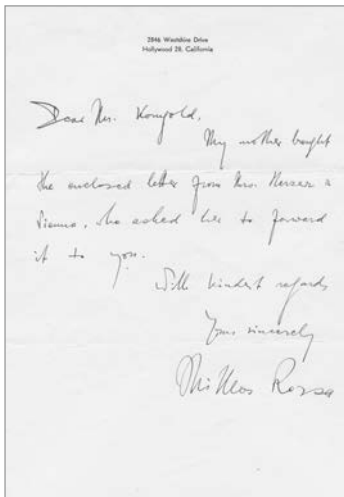 2846 Westshire Drive
Hollywood 28, California
Dear Mr. Korngold,
My mother brought
the enclosed letter from Mrs.
Vienna, who asked her to forward
it to you.
With kindest regards
Yours sincerely
Miklos Rozsa